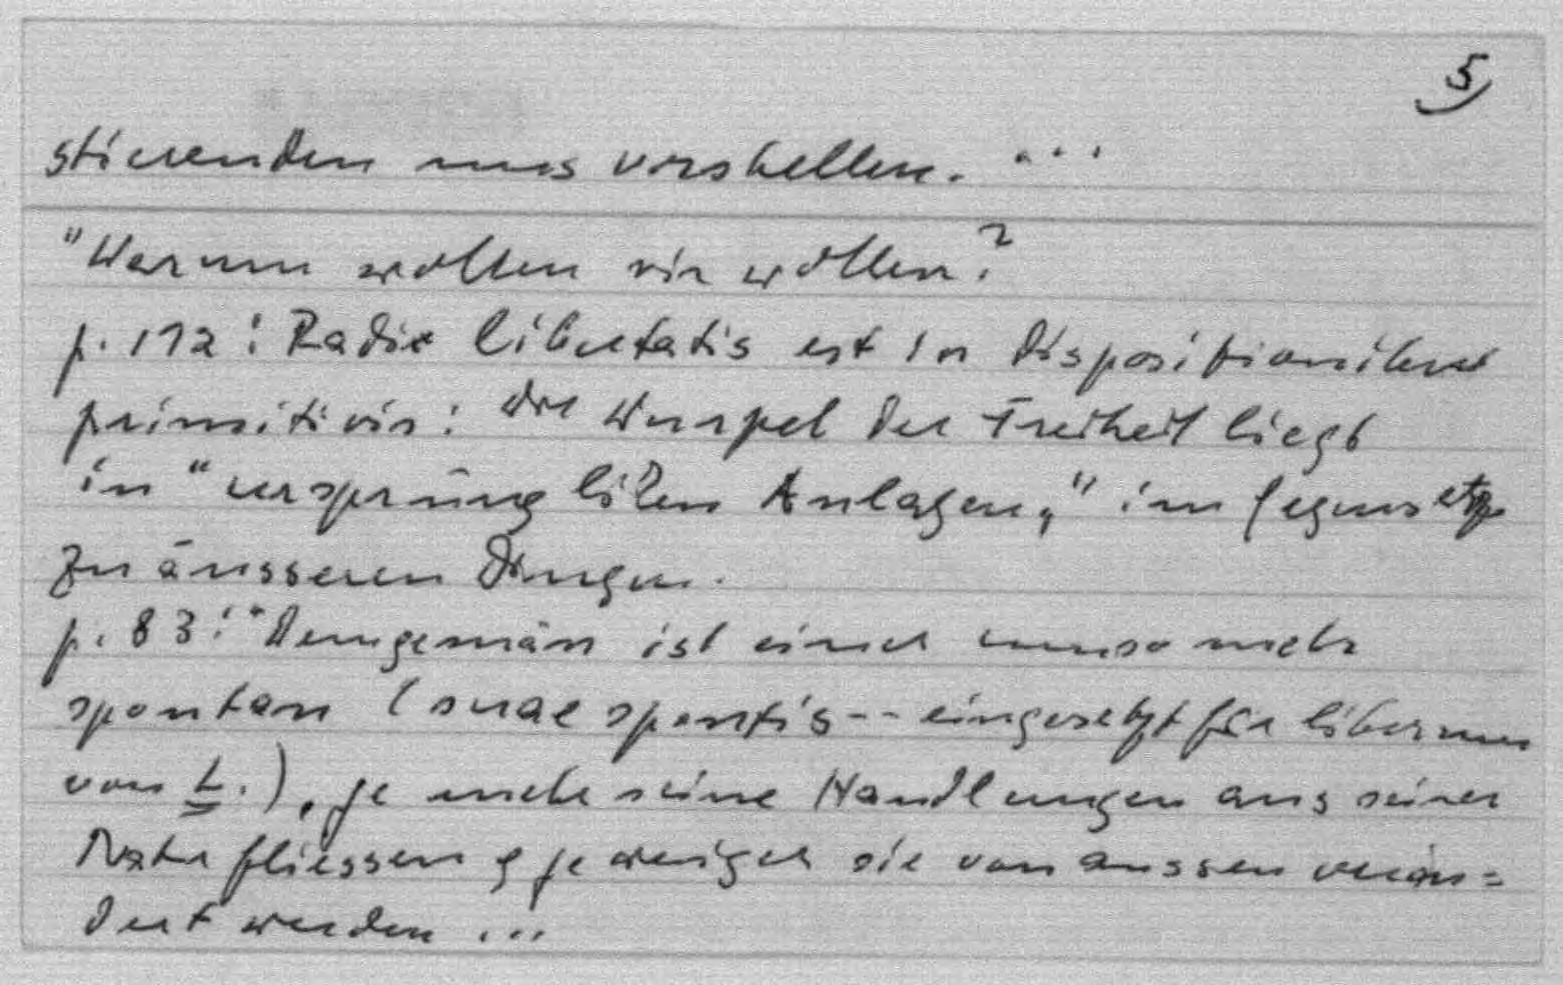 5)
stierenden uns vorstellen. ...
"Warum wollen wir wollen?
p. 112: Radix libertatis est in dispositionibus
primitivis: die Wurzel der Freiheit liegt
in "ursprünglichen Anlagen," im Gegensatz
zu äusseren Dingen.
p. 83: "Demgemäss ist einer umso mehr
spontan (suae spontis -- eingesetzt für liberum
von L.), je mehr seine Handlungen aus seiner
Natur fliessen & je weniger sie von aussen verän=
dert werden ...